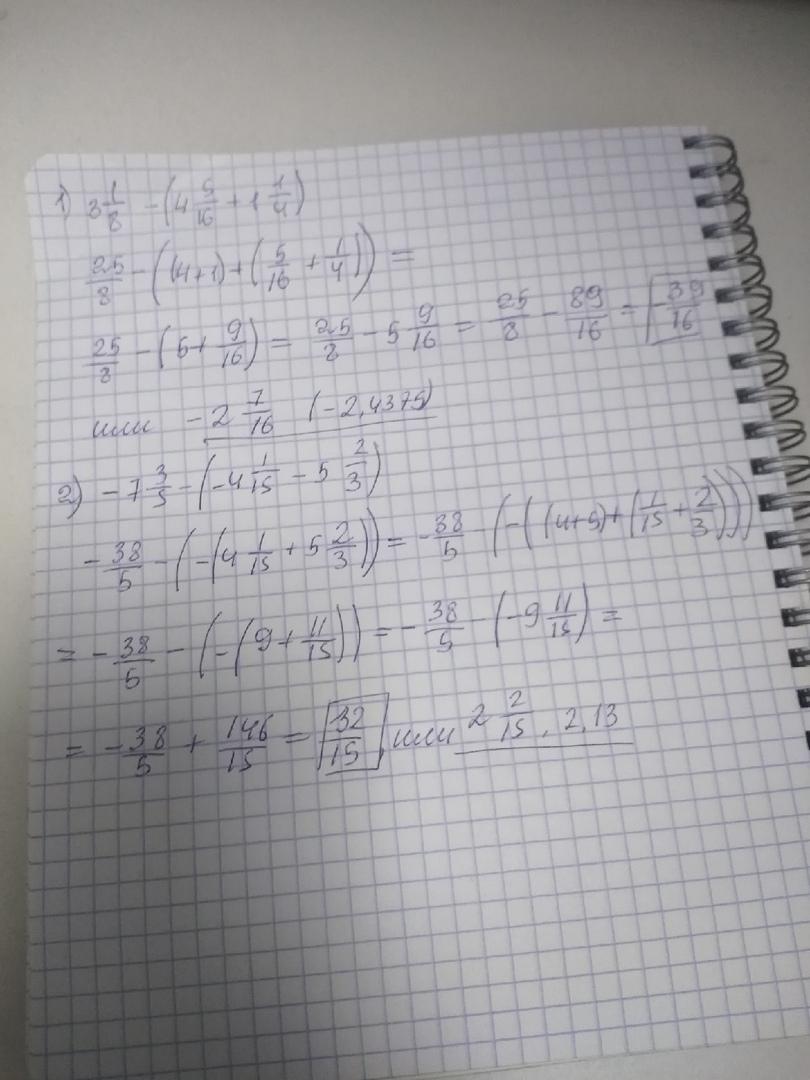 1) 3 1/8 - (4 5/16 + 1 1/4)
25/8 - ((4+1) + (5/16 + 1/4)) =
25/8 - (5 + 9/16) = 25/8 - 5 9/16 = 25/8 - 89/16 = -39/16
или -2 7/16 (-2,4375)
2) -7 3/5 - (-4 1/15 - 5 2/3)
-38/5 - (-(4 1/15 + 5 2/3)) = -38/5 - (-((4+5) + (1/15 + 2/3)))
= -38/5 - (-(9 + 11/15)) = -38/5 - (-9 11/15) =
= -38/5 + 146/15 = 32/15 или 2 2/15, 2,13